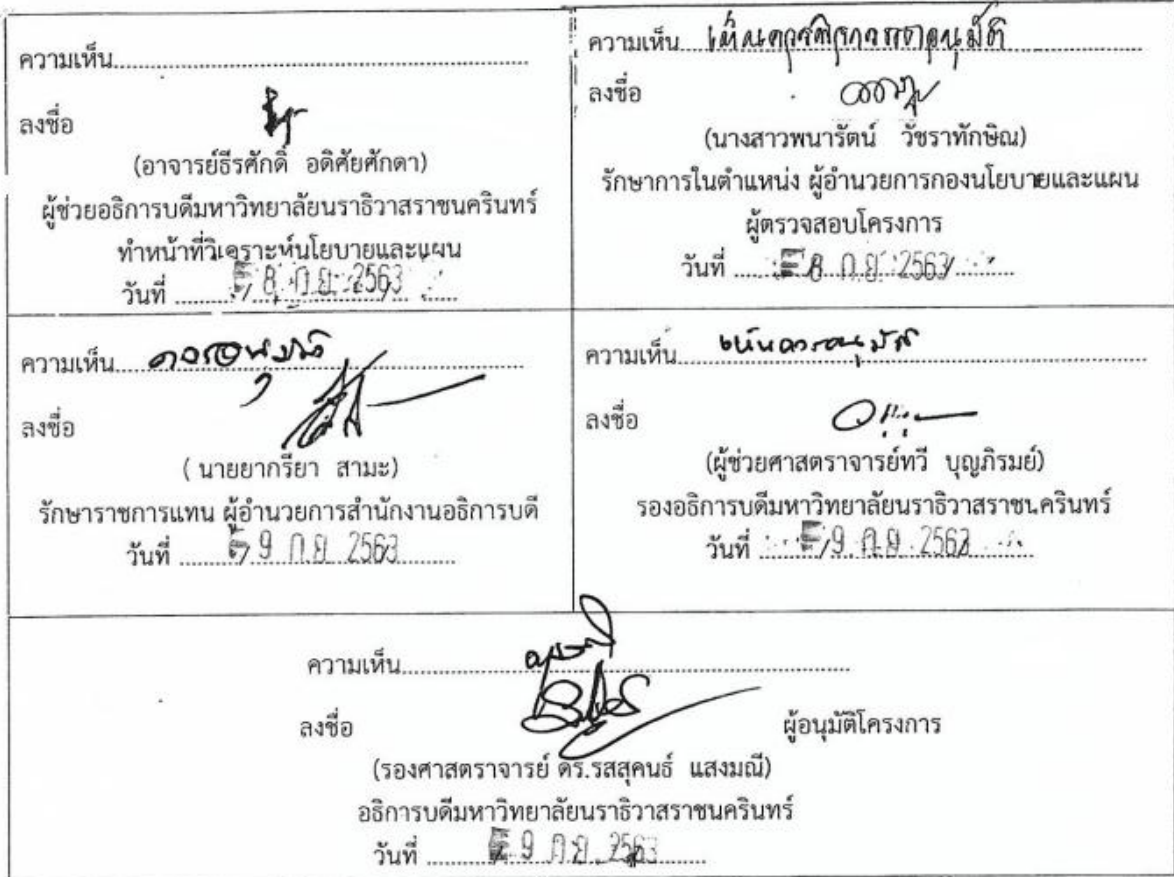 ความเห็น......................................................................
ลงชื่อ
(อาจารย์ธีรศักดิ์ อดิศัยศักดา)
ผู้ช่วยอธิการบดีมหาวิทยาลัยนราธิวาสราชนครินทร์
ทำหน้าที่วิเคราะห์นโยบายและแผน
วันที่ 8 ก.ย. 2563
ความเห็น เห็นควรพิจารณาอนุมัติ
ลงชื่อ
(นางสาวพนารัตน์ วัชราทักษิณ)
รักษาการในตำแหน่ง ผู้อำนวยการกองนโยบายและแผน
ผู้ตรวจสอบโครงการ
วันที่ 8 ก.ย. 2563
ความเห็น ควรอนุมัติ
ลงชื่อ
( นายยากรียา สามะ)
รักษาราชการแทน ผู้อำนวยการสำนักงานอธิการบดี
วันที่ 9 ก.ย. 2563
ความเห็น เห็นควรอนุมัติ
ลงชื่อ
(ผู้ช่วยศาสตราจารย์ทวี บุญภิรมย์)
รองอธิการบดีมหาวิทยาลัยนราธิวาสราชนครินทร์
วันที่ 9 ก.ย. 2563
ความเห็น อนุมัติ
ลงชื่อ ผู้อนุมัติโครงการ
(รองศาสตราจารย์ ดร.รสสุคนธ์ แสงมณี)
อธิการบดีมหาวิทยาลัยนราธิวาสราชนครินทร์
วันที่ 9 ก.ย. 2563